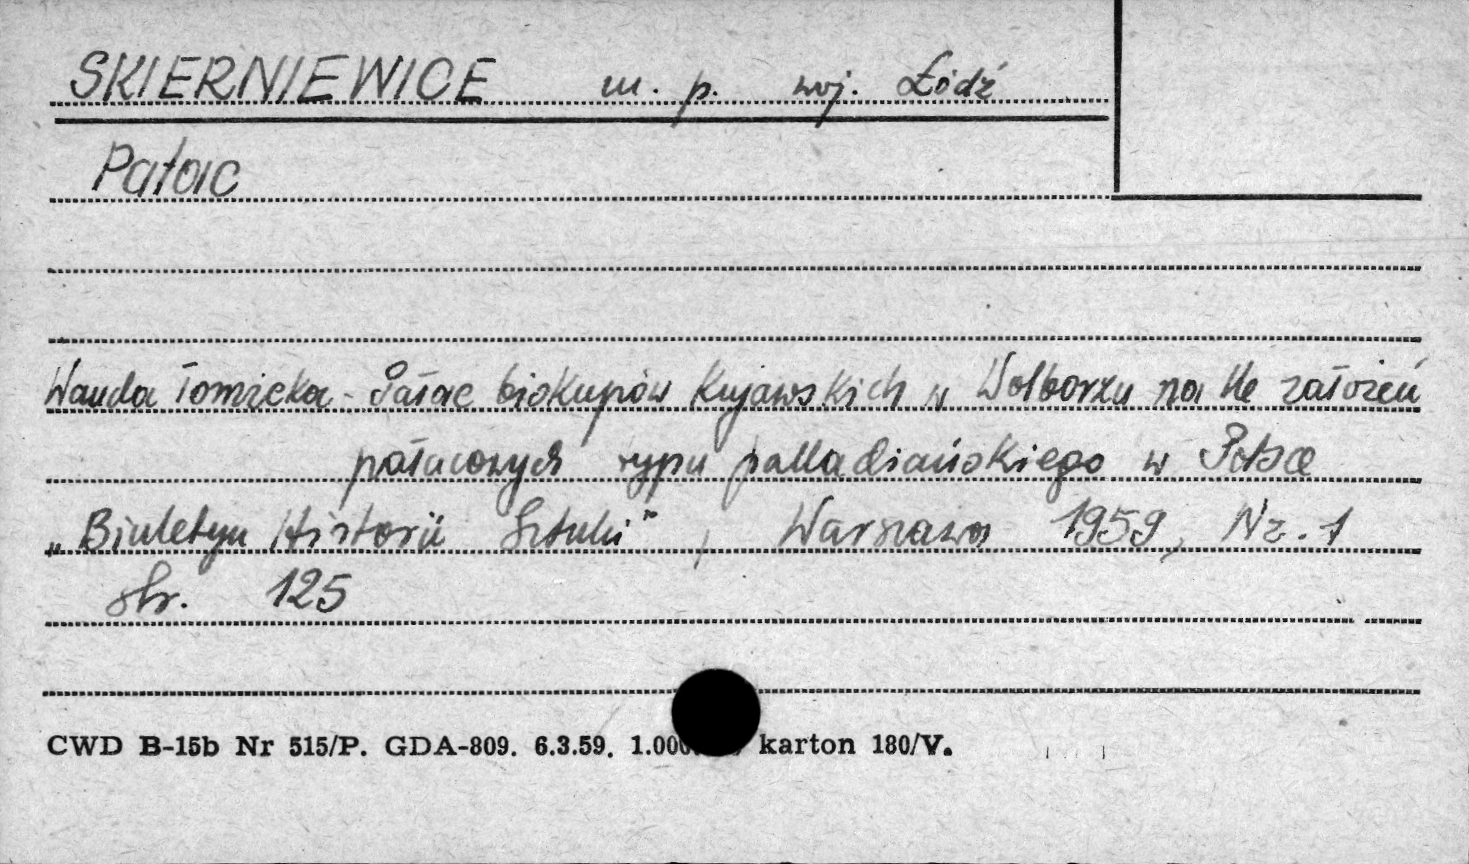 SKIERNIEWICE m. p. woj. Łódź
Pałac
Wanda Tomicka - Pałac biskupów Kujawskich w Wolborzu na tle założeń
pałacowych typu palladiańskiego w Polsce
„Biuletyn Historii Sztuki", Warszawa 1959, Nr. 1
str. 125
CWD B-15b Nr 515/P. GDA-809. 6.3.59. karton 180/V.